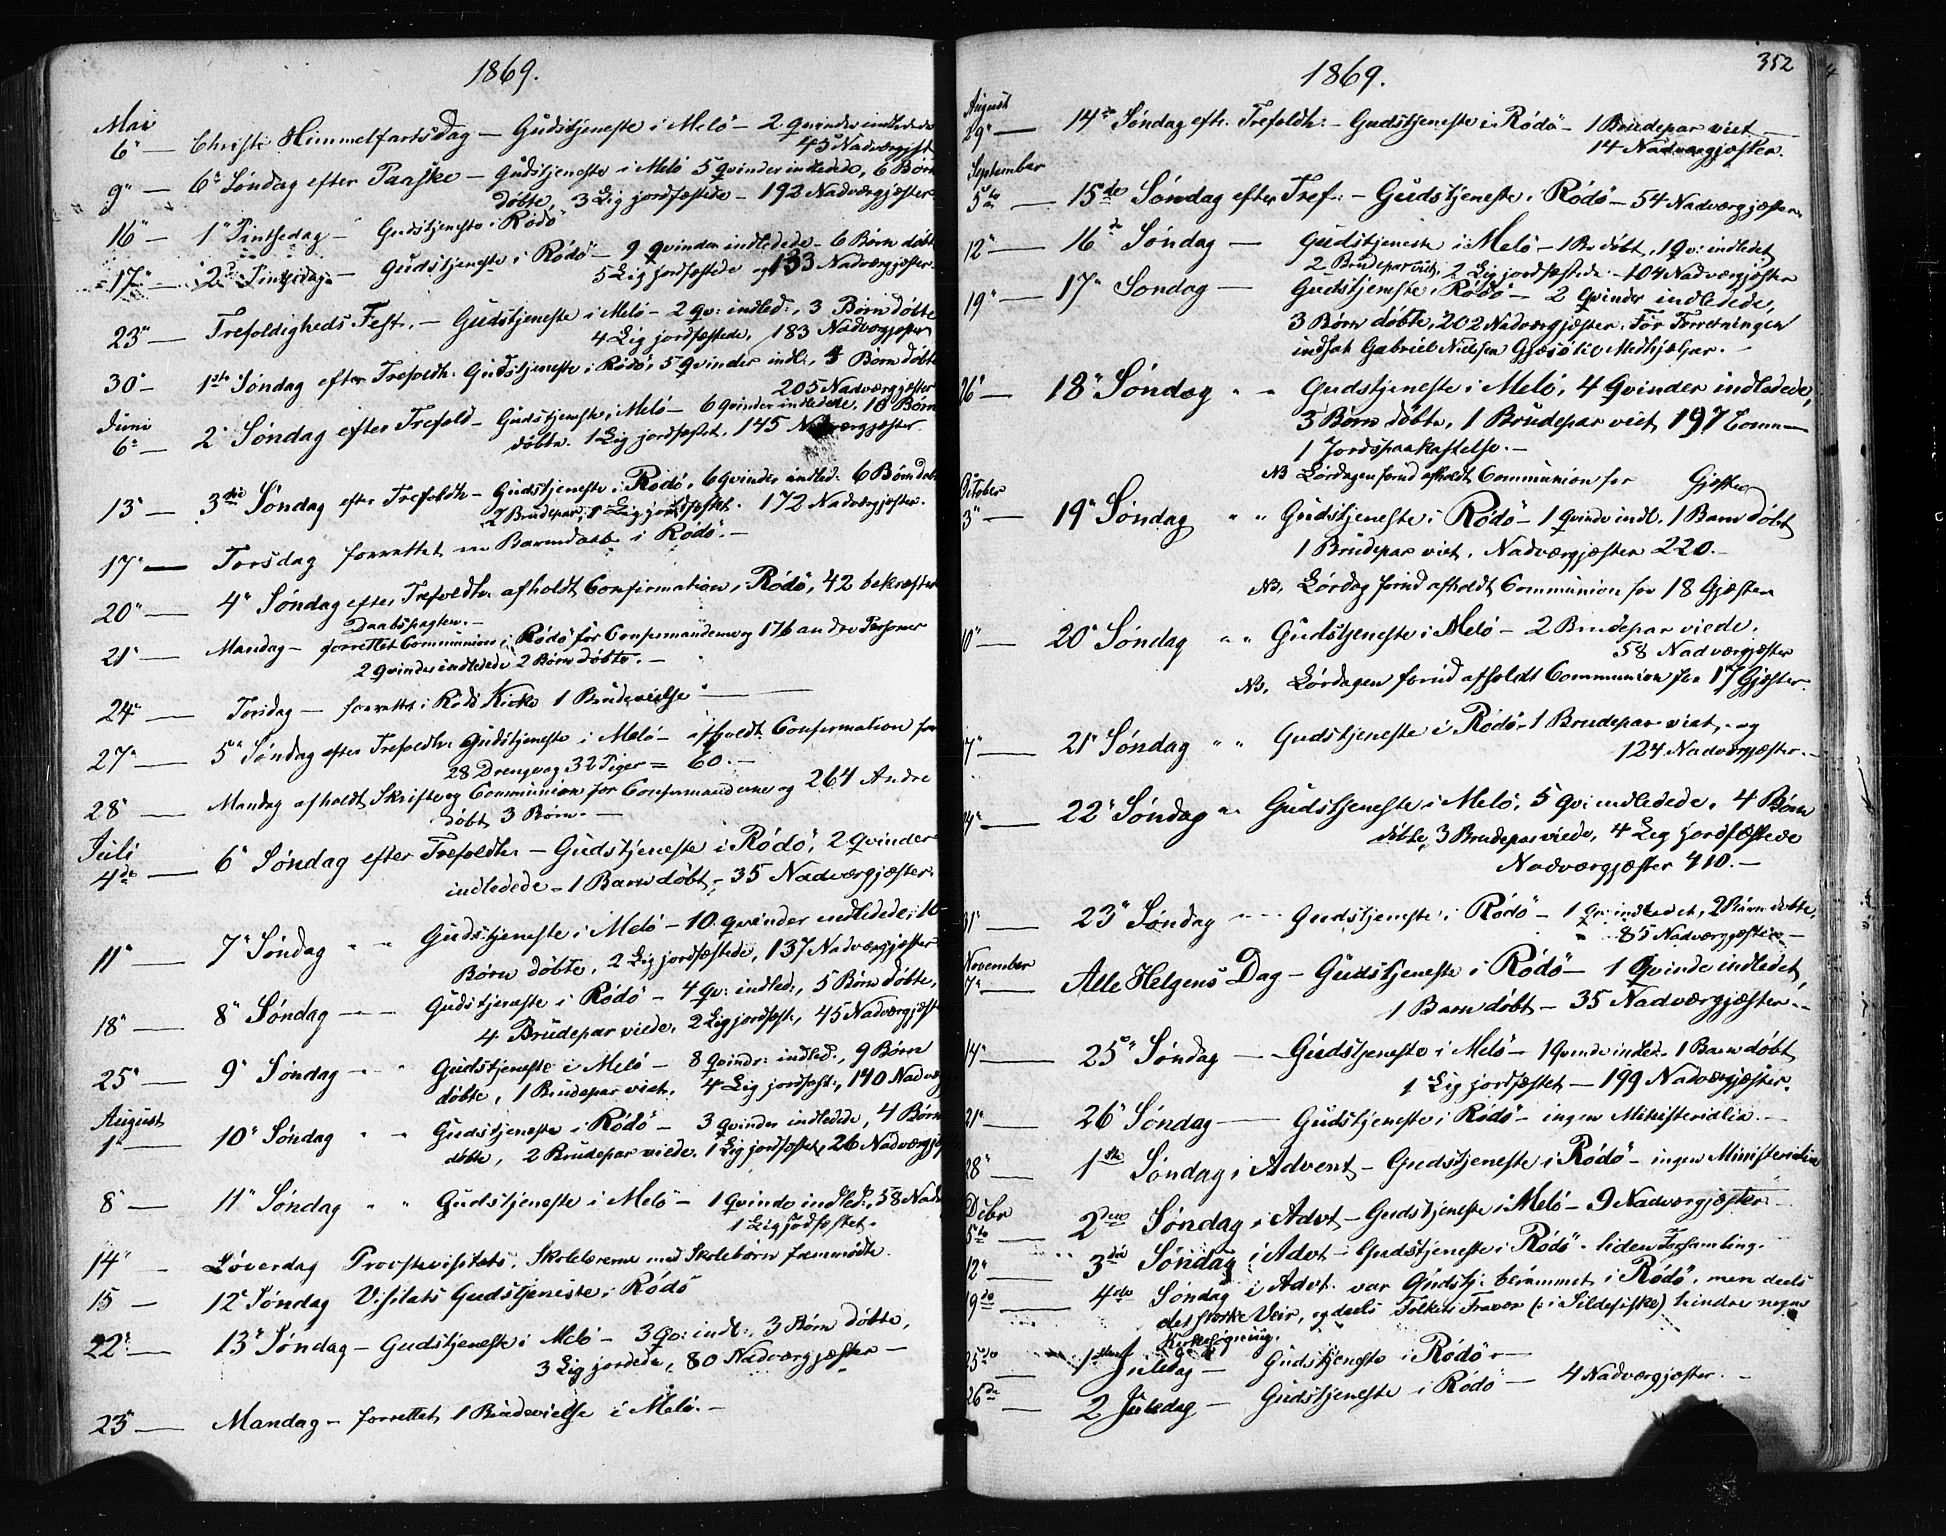 1869.
Mai
6" Christi Himmelfartsdag – Gudstjeneste i Melö – 2 Qvinder indledede
45 Nadvergjest
9" – 6" Søndag efter Paaske – Gudstjeneste i Melö 5 Qvinder indledede, 6 Børn
døbte, 3 Lig jordfæstede – 192 Nadværgjæster
16" – 1" Pintsedag – Gudstjeneste i Rödö
17" – 2" Pintsedag – Gudstjeneste i Rödö – 9 Qvinder indledede – 6 Børn døbt
5 Lig jordfæstede og 133 Nadværgjæster.
23" – Trefoldigheds Fest. – Gudstjeneste i Melö – 2 Qv: indled:, 3 Børn døbte
4 Lig jordfæstede, 183 Nadværgjæster
30" – 1ste Søndag efter Trefoldh. Gudstjeneste i Rödö, 5 Qvinder indl:, Børn døbte
205 Nadværgjæster
Juni
6" – 2" Søndag efter Trefold – Gudstjeneste i Melö – 6 Qvinder indledede, 10 Børn
døbte. 1 Lig jordfæstet, 145 Nadværgjæster
13" – 3die Søndag efter Trefoldh – Gudstjeneste i Rödö, 6 Qvinder indled. 6 Børn døbt
2 Brudepar, 1 Lig jordfæstet. 172 Nadværgjæster.
17" – Torsdag forrettet en Barnedaab i Rödö. –
20" – 4" Søndag efter Trefoldh. afholdt Confirmation i Rödö, 42 bekræfter
Daabspagten. –
21" – Mandag – forrettet Communion i Rödö for Confirmanderne og 176 andre Personer
2 Qvinder indledede 2 Børn døbte. –
24" – Torsdag – forrettet i Rödö Kirke 1 Brudevielse –
27" – 5" Søndag efter Trefoldh. Gudstjeneste i Melö – afholdt Confirmation for
28 Drenge og 32 Piger = 60. –
28" Mandag afholdt Skrifte og Communion for Confirmanderne og 264 Andre
døbt 3 Børn. –
Juli
4de – 6" Søndag efter Trefoldh. – Gudstjeneste i Rödö, 2 Qvinder
indledede – 1 Barn døbt – 35 Nadværgjæster.
11" – 7" Søndag " " Gudstjeneste i Melö – 10 Qvinder indledede, 10
Børn døbte, 2 Lig jordfæstede, 137 Nadværgjæster
18" – 8" Søndag – – Gudstjeneste i Rödö – 4 Qv: indled:, 5 Børn døbte,
4 Brudepar viede, 2 Lig jordfæst:, 45 Nadværgjæst
25" – 9" Søndag " " Gudstjeneste i Melö – 8 Qvindr: indled., 9 Børn
døbte, 1 Brudepar viet, 4 Lig jordfæst:, 140 Nadværg
August
1" – 10" Søndag " " Gudstjeneste i Rödö – 3 Qvinder indledede, 4 Børn
døbte, 2 Brudepar viede, 1 Lig jordfæstet, 26 Nadværgj
8" – 11" Søndag " " Gudstjeneste i Melö – 1 Qvinde indled:, 58 Nadv
1 Lig jordfæstet.
14" Løverdag Provstevisitats, Skolelærerne med Skolebørn fremmødte.
15 – 12" Søndag Visitats Gudstjeneste i Rödö
22" – 13" Søndag – Gudstjeneste i Melö – 3 Qv: indl:, 3 Børn døbte,
3 Lig jordede, 80 Nadværgjæster –
23" – Mandag – forrettet 1 Brudevielse i Melö. –
352
1869.
August
29" – 14de Søndag eft. Trefoldh: – Gudstjeneste i Rödö – 1 Brudepar viet –
14 Nadværgjæster.
September
5te – 15de Søndag efter Tref: – Gudstjeneste i Rödö – 54 Nadværgjæster.
12" – 16de Søndag – Gudstjeneste i Melö – 1 B. døbt, 1 Qv: indledet
2 Brudepar viet, 2 Lig jordfæstede – 104 Nadværgjæster
19" – 17" Søndag – Gudstjeneste i Rödö – 2 Qvinder indledede,
3 Børn døbte, 202 Nadværgjæster. Før Forretningen
indsat Gabriel Nielsen til Medhjelper. –
26" – 18" Søndag " " Gudstjeneste i Melö, 4 Qvinder indledede,
3 Børn døbte, 1 Brudepar viet 197 Comm –
1 Jordspaakastelse. –
NB Lørdagen forud afholdt Communion for Gjæster
October
3" – 19" Søndag " " Gudstjeneste i Rödö – 1 Qvinde indl. 1 Barn døbt
1 Brudepar viet. Nadværgjæster 220. –
NB. Lørdag forud afholdt Communion for 18 Gjæster
10" – 20" Søndag " " Gudstjeneste i Melö – 2 Brudepar viede.
58 Nadværgjæster
NB. Lørdagen forud afholdt Communion for 17 Gjæster.
17" – 21" Søndag " " Gudstjeneste i Rödö – 1 Brudepar viet, og
124 Nadværgjæster. –
24" – 22" Søndag " " Gudstjeneste i Melö, 5 Qv: indledede, 4 Børn
døbte, 3 Brudepar viede, 4 Lig jordfæstede
Nadværgjæster 410. –
31" 23" Søndag – – Gudstjeneste i Rödö – 1 Qv: indledet, 2 Børn døbte,
85 Nadværgjæster –
November
7" – Alle Helgens Dag – Gudstjeneste i Rödö – 1 Qvinde indledet,
1 Barn døbt – 35 Nadværgjæster. –
14" – 25" Søndag – Gudstjeneste i Melö – 1 Qvinde indled. 1 Barn døbt
1 Lig jordfæstet – 199 Nadværgjæster.
21" – 26" Søndag – Gudstjeneste i Rödö – ingen Ministerialia. –
28" – 1ste Søndag i Advent – Gudstjeneste i Rödö – ingen Ministerialia
Decbr
5te – 2den Søndag i Advt – Gudstjeneste i Melö – 9 Nadværgjæster.
12" – 3die Søndag i Advt – Gudstjeneste i Rödö – liden Forsamling.
19de – 4de Søndag i Advt. var Gudstj: berammet i Rödö, men deels
det stærke Veir, og deels Folkets Fravær (: i Sildefiske) hindre nogen
Kirkesøgning.
25de – 1ste Juledag – Gudstjeneste i Rödö –
26de – 2 Juledag – Gudstjeneste i Rödö – 4 Nadværgjæster. –